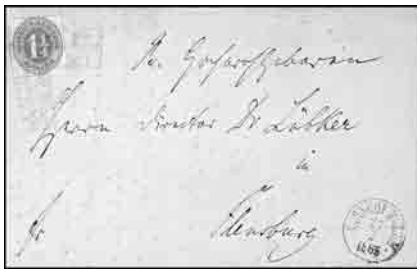 1¼
Sr. Hochwohlgeboren
Herrn Director Dr Lübker
in
Flensburg
fr